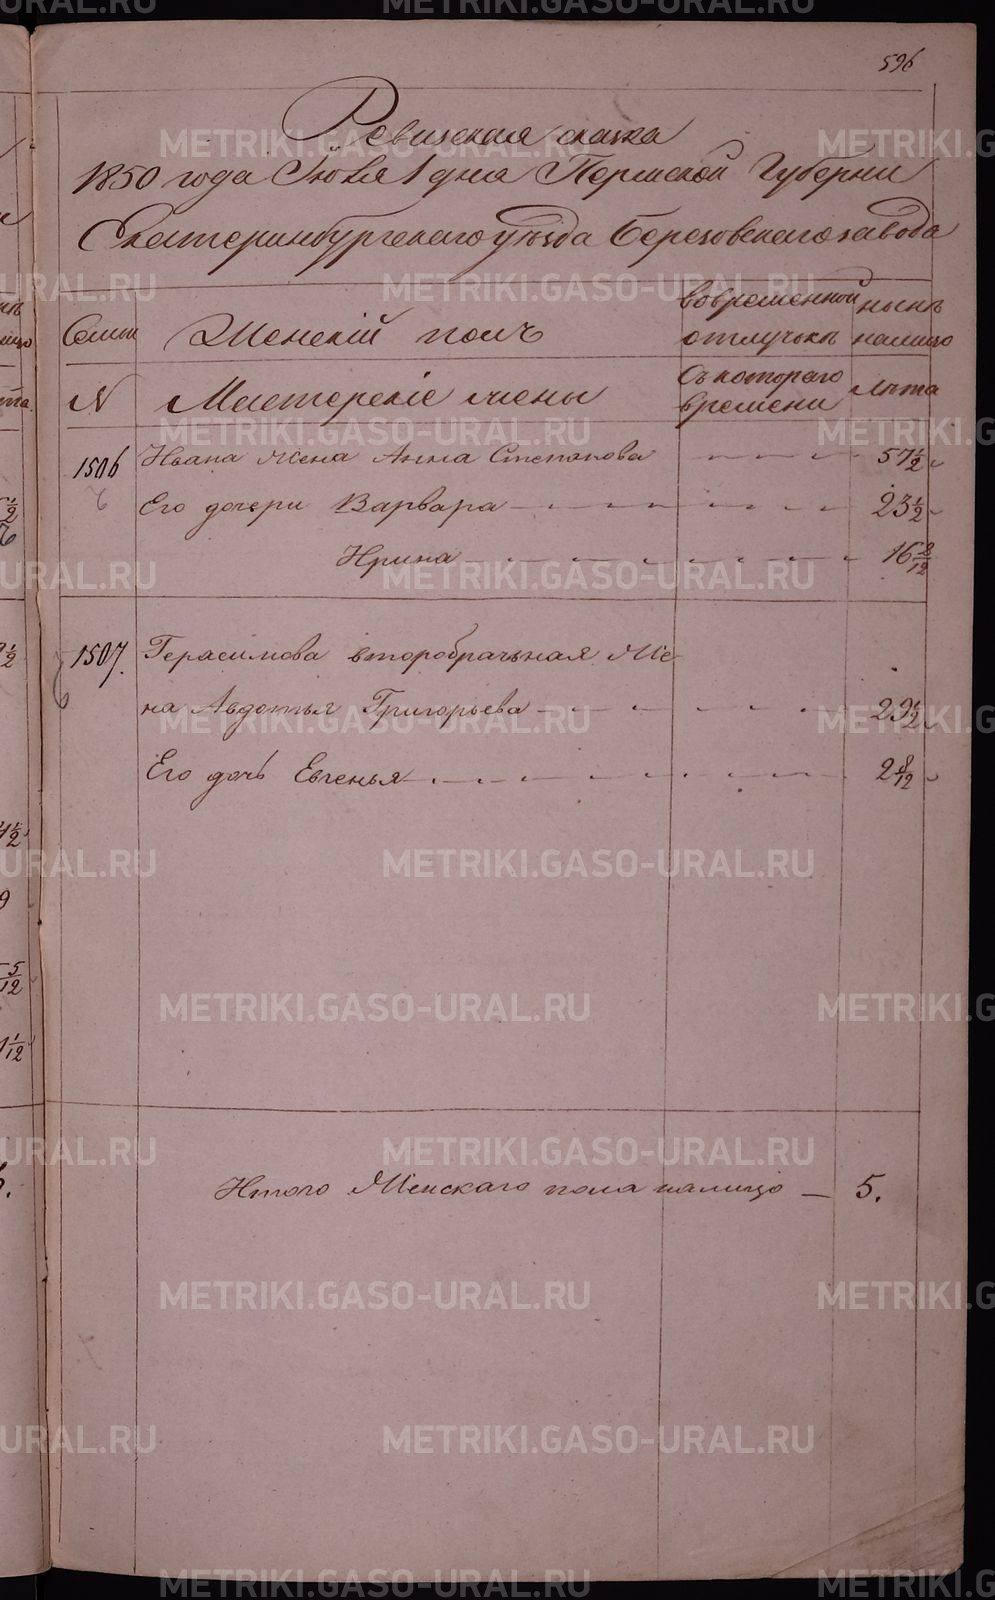 596
Ревизская сказка
1850 года Июля 1 дня Пермской Губернии
Екатеринбургскаго уѣзда Березовскаго завода
Семьи
Женскій полъ
во временной
отлучкѣ
нынѣ
налицо
N
Мастерскіе жены
Съ котораго
времени
лѣта
1506
Ивана жена Анна Степанова
57 1/2
Его дочери Варвара
23 1/2
Ирина
16 2/12
1507.
Герасимова второбрачьная Же
на Авдотья Григорьева
29 1/2
Его дочь Евгенья
2 8/12
Итого Женскаго пола налицо — 5.
METRIKI.GASO-URAL.RU